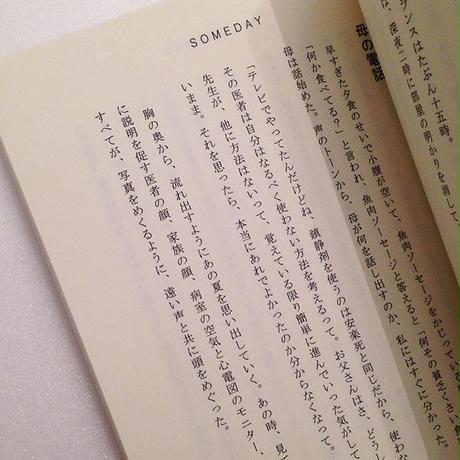 ランスはたぶん十五時。
は、深夜二時に部屋の明かりを消して、
母の電話
早すぎた夕食のせいで小腹が空いて、魚肉ソーセージをかじっている
「何か食べてる?」と言われ、魚肉ソーセージと答えると「何その貧乏くさい食
母は話始めた。声のトーンから、母が何を話し出すのか、私にはすぐに分かった。
「テレビでやってたんだけどね、鎮静剤を使うのは安楽死と同じだから、使わな
その医者は自分はなるべく使わない方法を考えるって。お父さんはさ、どうし
先生が、他に方法はないって、覚えている限り簡単に進んでいった気がして
いまま。それを思ったら、本当にあれでよかったのか分からなくなって。
胸の奥から、流れ出すようにあの夏を思い出していく。あの時、見
に説明を促す医者の顔、家族の顔、病室の空気と心電図のモニター、
すべてが、写真をめくるように、遠い声と共に頭をめぐった。
SOMEDAY